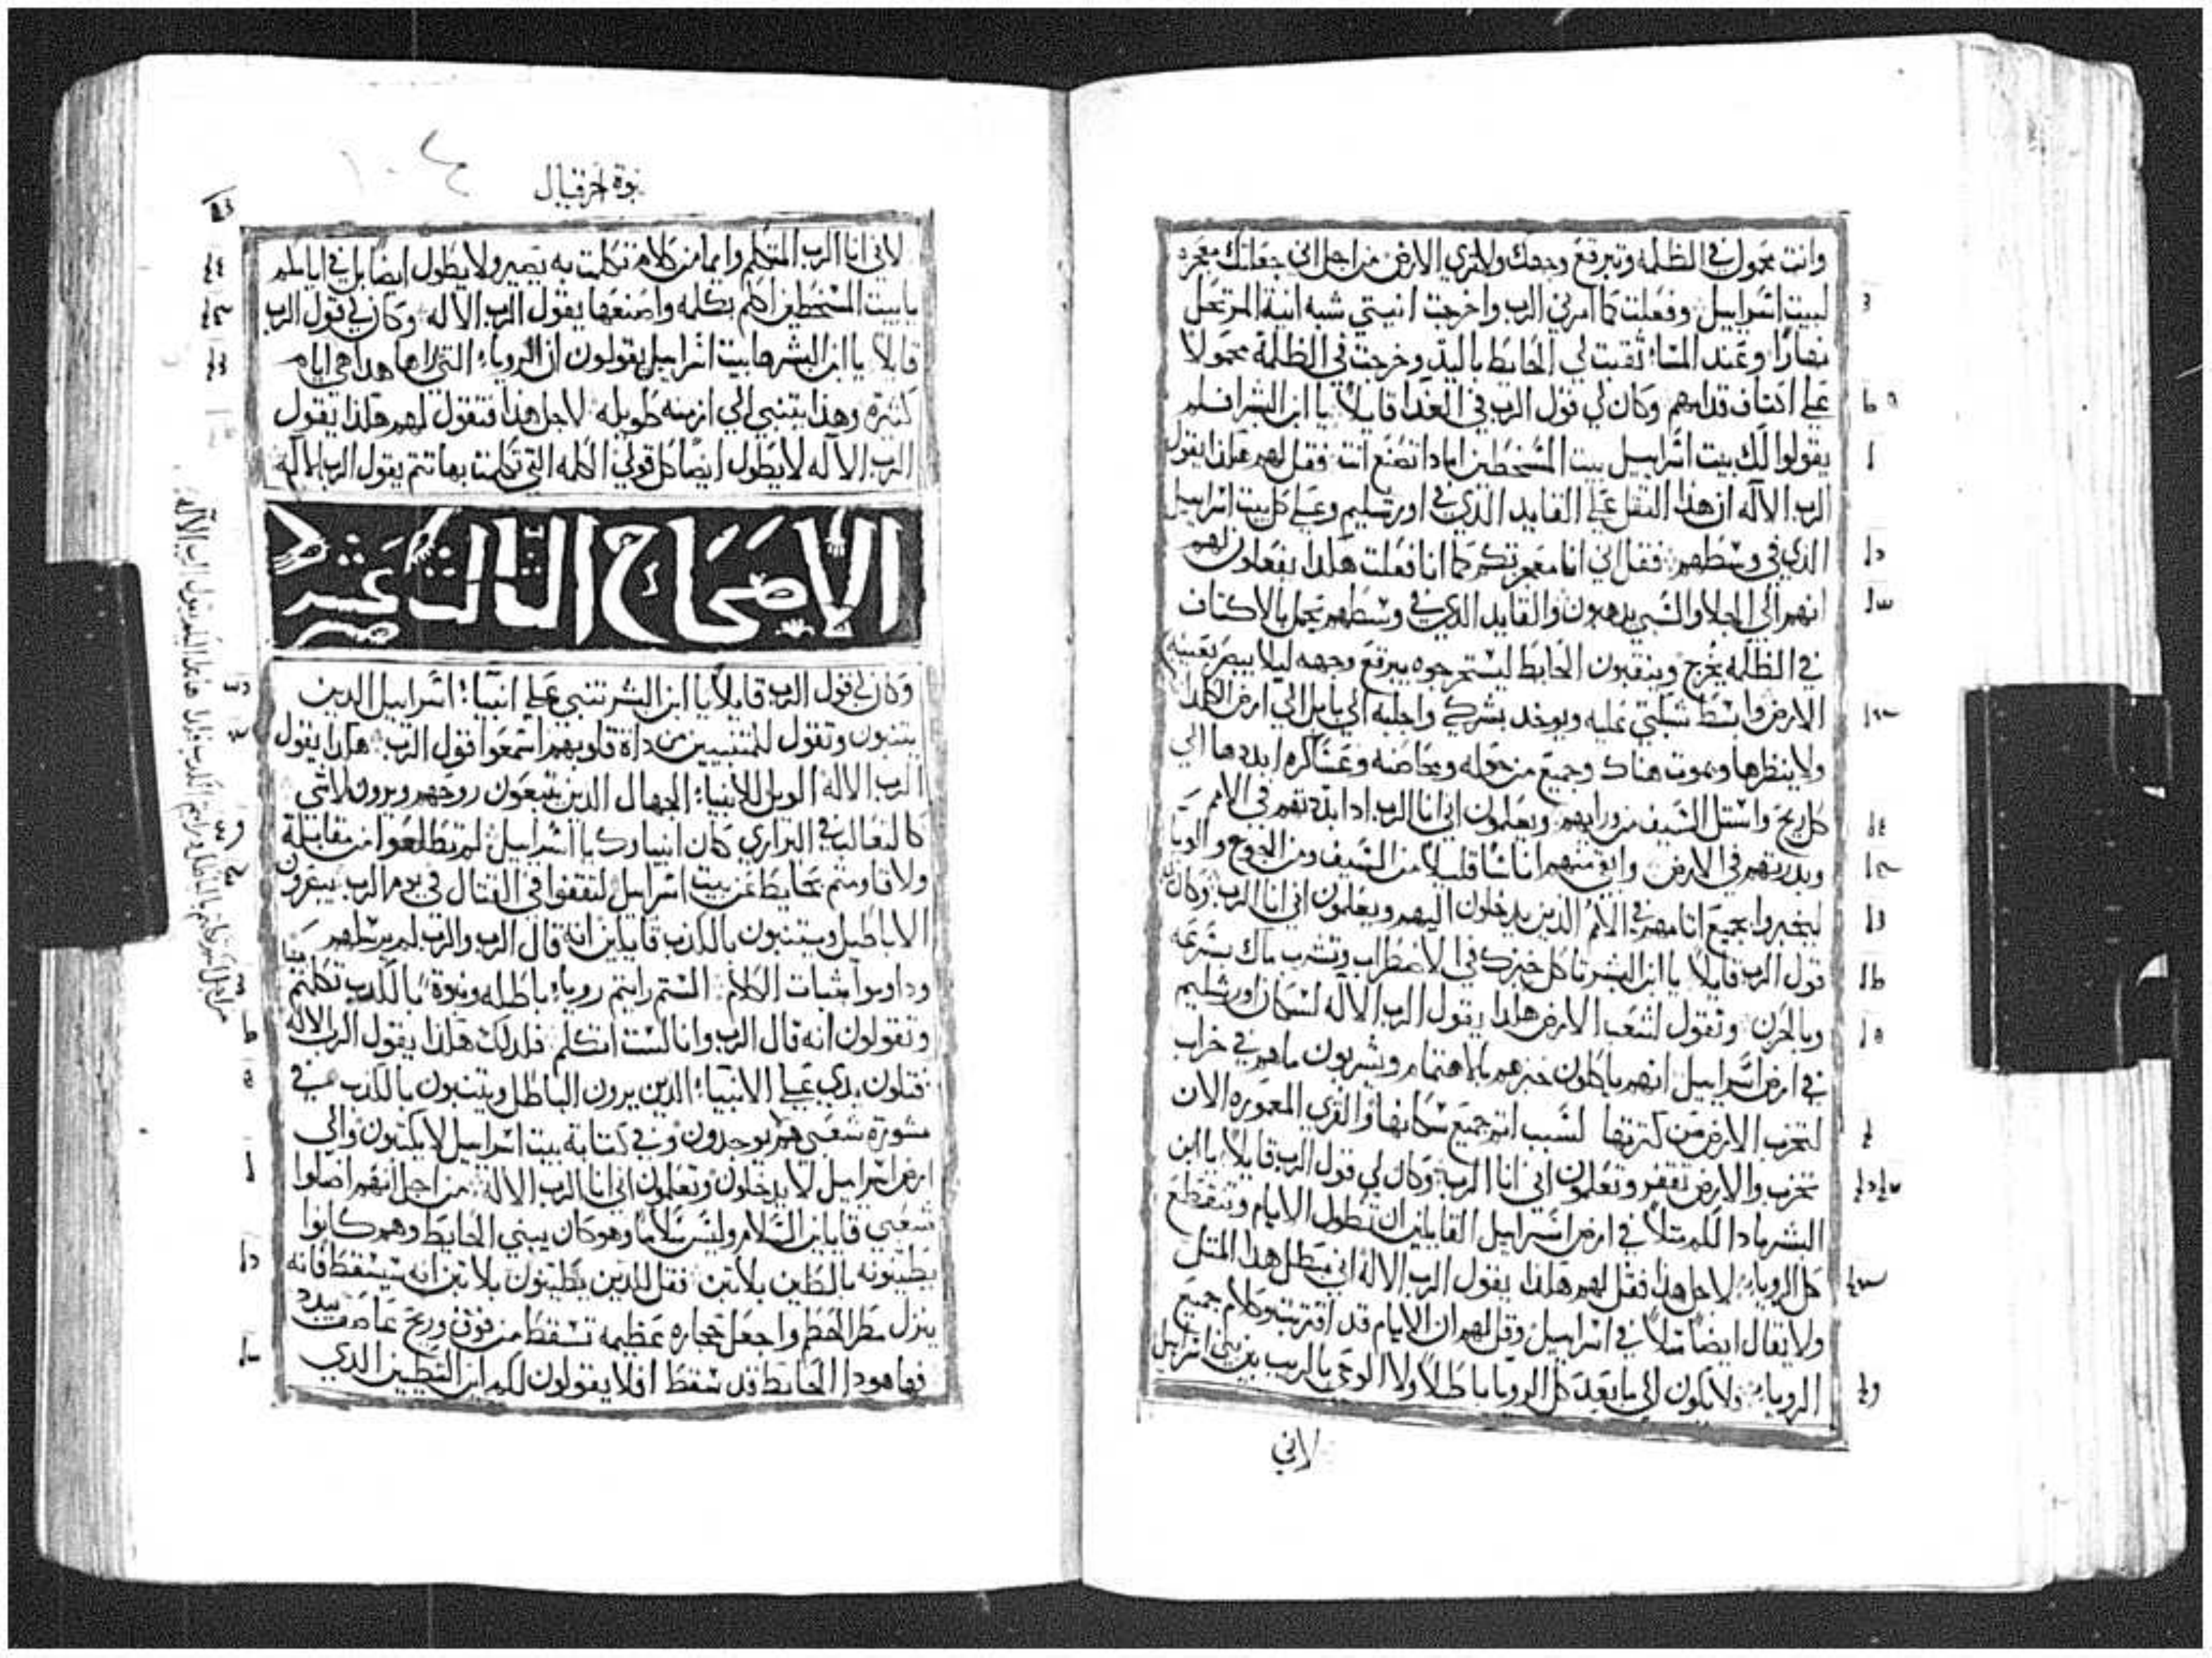 وانت محمول في الظلمه وتبرقع وجهك ولا تري الارض من اجل اني جعلتك معجزه
لبيت اسراييل وفعلت كما امرني الرب واخرجت انيتي شبه انية المرتحل
نهارًا وعند المساء ثقبت لي الحايط باليد وخرجت في الظلمة محمولا
علي اكتاف قدامهم وكان لي قول الرب في الغدا قايلاً يا ابن البشر افلم
يقولوا لك بيت اسراييل بيت المسخطين اماذا تصنع انت فقل لهم هكذا يقول
الرب الاله ان هذا الثقل علي القايد الذي في اورشليم وعلي كل بيت اسراييل
الذي في وسطهم فقل اني انا معجزتكم كما انا فعلت هكذا يفعلون لهم
انهم الي الجلا والسبي يذهبون والقايد الذي في وسطهم يحمل بالاكتاف
في الظلمه يخرج وينقبون الحايط ليستخرجوه يبرقع وجهه ليلا يبصر بعينيه
الارض وابسط شبكتي عليه ويوخد بشركي واجلبه الي بابل الي ارض الكلدا
ولا ينظرها ويموت هناك وجميع من حوله ومحاضنه وعساكره ابددها الي
كل ريح واستل السيف من ورايهم ويعلمون اني انا الرب اذا بددتهم في الامم
وبدرتهم في الارض وابقي منهم اناسًا قليلاً من السيف ومن الجوع والوبا
ليخبروا بجميع اثامهم في الامم الذين يدخلون اليهم ويعلمون اني انا الرب وكان
قول الرب قايلاً يا ابن البشر تاكل خبزك في الاضطراب وتشرب ماك بسرعه
وبالحزن وتقول لشعب الارض هكذا يقول الرب الاله لسكان اورشليم
في ارض اسراييل انهم ياكلون خبزهم بالاهتمام ويشربون ماهم في خراب
لتخرب الارض من كثرتها لسبب اثم جميع سكانها والقري المعموره الان
تخرب والارض تقفر وتعلمون اني انا الرب وكان لي قول الرب قايلاً يا ابن
البشر ماذا لكم مثلاً في ارض اسراييل القايلين ان تطول الايام وتنقطع
كل الرويا لاجل هذا فقل لهم هكذا يقول الرب الاله اني مبطل هذا المثل
ولا يقال ايضًا مثلاً في اسراييل وقل لهم ان الايام قد اقتربت وكلام جميع
الرويا ولا يكون الي ما بعد كل الرويا باطلاً ولا الوحي بالريب بين بني اسراييل
لاني
نبوة حزقيال
لاني انا الرب المتكلم وايما من كلام تكلمت به يصير ولا يطول ايضًا بل في ايامكم
يا بيت المسخطين اكلم بكلمه واصنعها يقول الرب الاله وكان لي قول الرب
قايلاً يا ابن البشر ها بيت اسراييل يقولون ان الرويا التي راها هذا هي ايام
كثيرة وهذا يتنبي الي ازمنه طويله لاجل هذا فتقول لهم هكذا يقول
الرب الاله لا يطول ايضًا كل قولي الكلمه التي تكلمت بها تتم يقول الرب الاله
الاصحاح الثالث عشر
وكان لي قول الرب قايلاً يا ابن البشر تنبي علي انبياء اسراييل الذين
يتنبون وتقول للمتنبيين من ذاة قلوبهم اسمعوا قول الرب هكذا يقول
الرب الاله الويل للانبياء الجهال الذين يتبعون روحهم ويرون لا شي
كالثعالب في البراري كان انبياوك يا اسراييل لم تطلعوا من مقابلة
ولا قاومتم بحايط عن بيت اسراييل لتقفوا في القتال في يوم الرب يبصرون
الاباطيل ويتنبون بالكذب قايلين انه قال الرب والرب لم يرسلهم
وداوموا ثبات الكلام الستم رايتم رويا باطله ونبوة بالكدب تكلمتم
وتقولون انه قال الرب وانا لست اتكلم فلدلك هكذا يقول الرب الاله
فتكون يدي علي الانبياء الدين يرون الباطل ويتنبون بالكدب في
مشورة شعبي هم يوجدون وفي كتابة بيت اسراييل لا يكتبون والي
ارض اسراييل لا يدخلون وتعلمون اني انا الرب الاله من اجل انهم اضلوا
شعبي قايلين السلام وليس سلامًا وهو كان يبني الحايط وهم كانوا
يطينونه بالطين بلا تبن فقل للدين يطينون بلا تبن انه سيسقط فانه
ينزل مطر الحطم واجعل حجاره عظيمه تسقط من فوق وريح عاصف يبدد
فها هودا الحايط قد سقط افلا يقولون لكم اين التطيين الدي